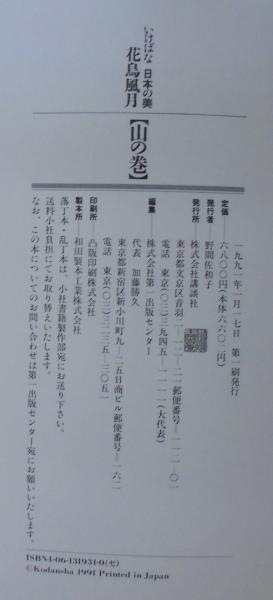 いけばな 日本の美
花鳥風月【山の巻】
一九九一年一月一七日 第一刷発行
定価―六八〇〇円(本体六六〇二円)
発行者―野間佐和子
発行所―株式会社講談社
東京都文京区音羽二―一二―二一 郵便番号―一一二―〇一
電話 東京(〇三)三九四五―一一一一(大代表)
編集―株式会社第一出版センター
代表 加藤勝久
東京都新宿区新小川町九―二五日商ビル 郵便番号―一六二
電話 東京(〇三)三二三五―三〇五一
印刷所―凸版印刷株式会社
製本所―和田製本工業株式会社
落丁本・乱丁本は、小社書籍製作部宛にお送り下さい。
送料小社負担にてお取り替えいたします。
なお、この本についてのお問い合わせは第一出版センター宛にお願いいたします。
ISBN4-06-131931-0(セ)
©Kodansha 1991 Printed in Japan